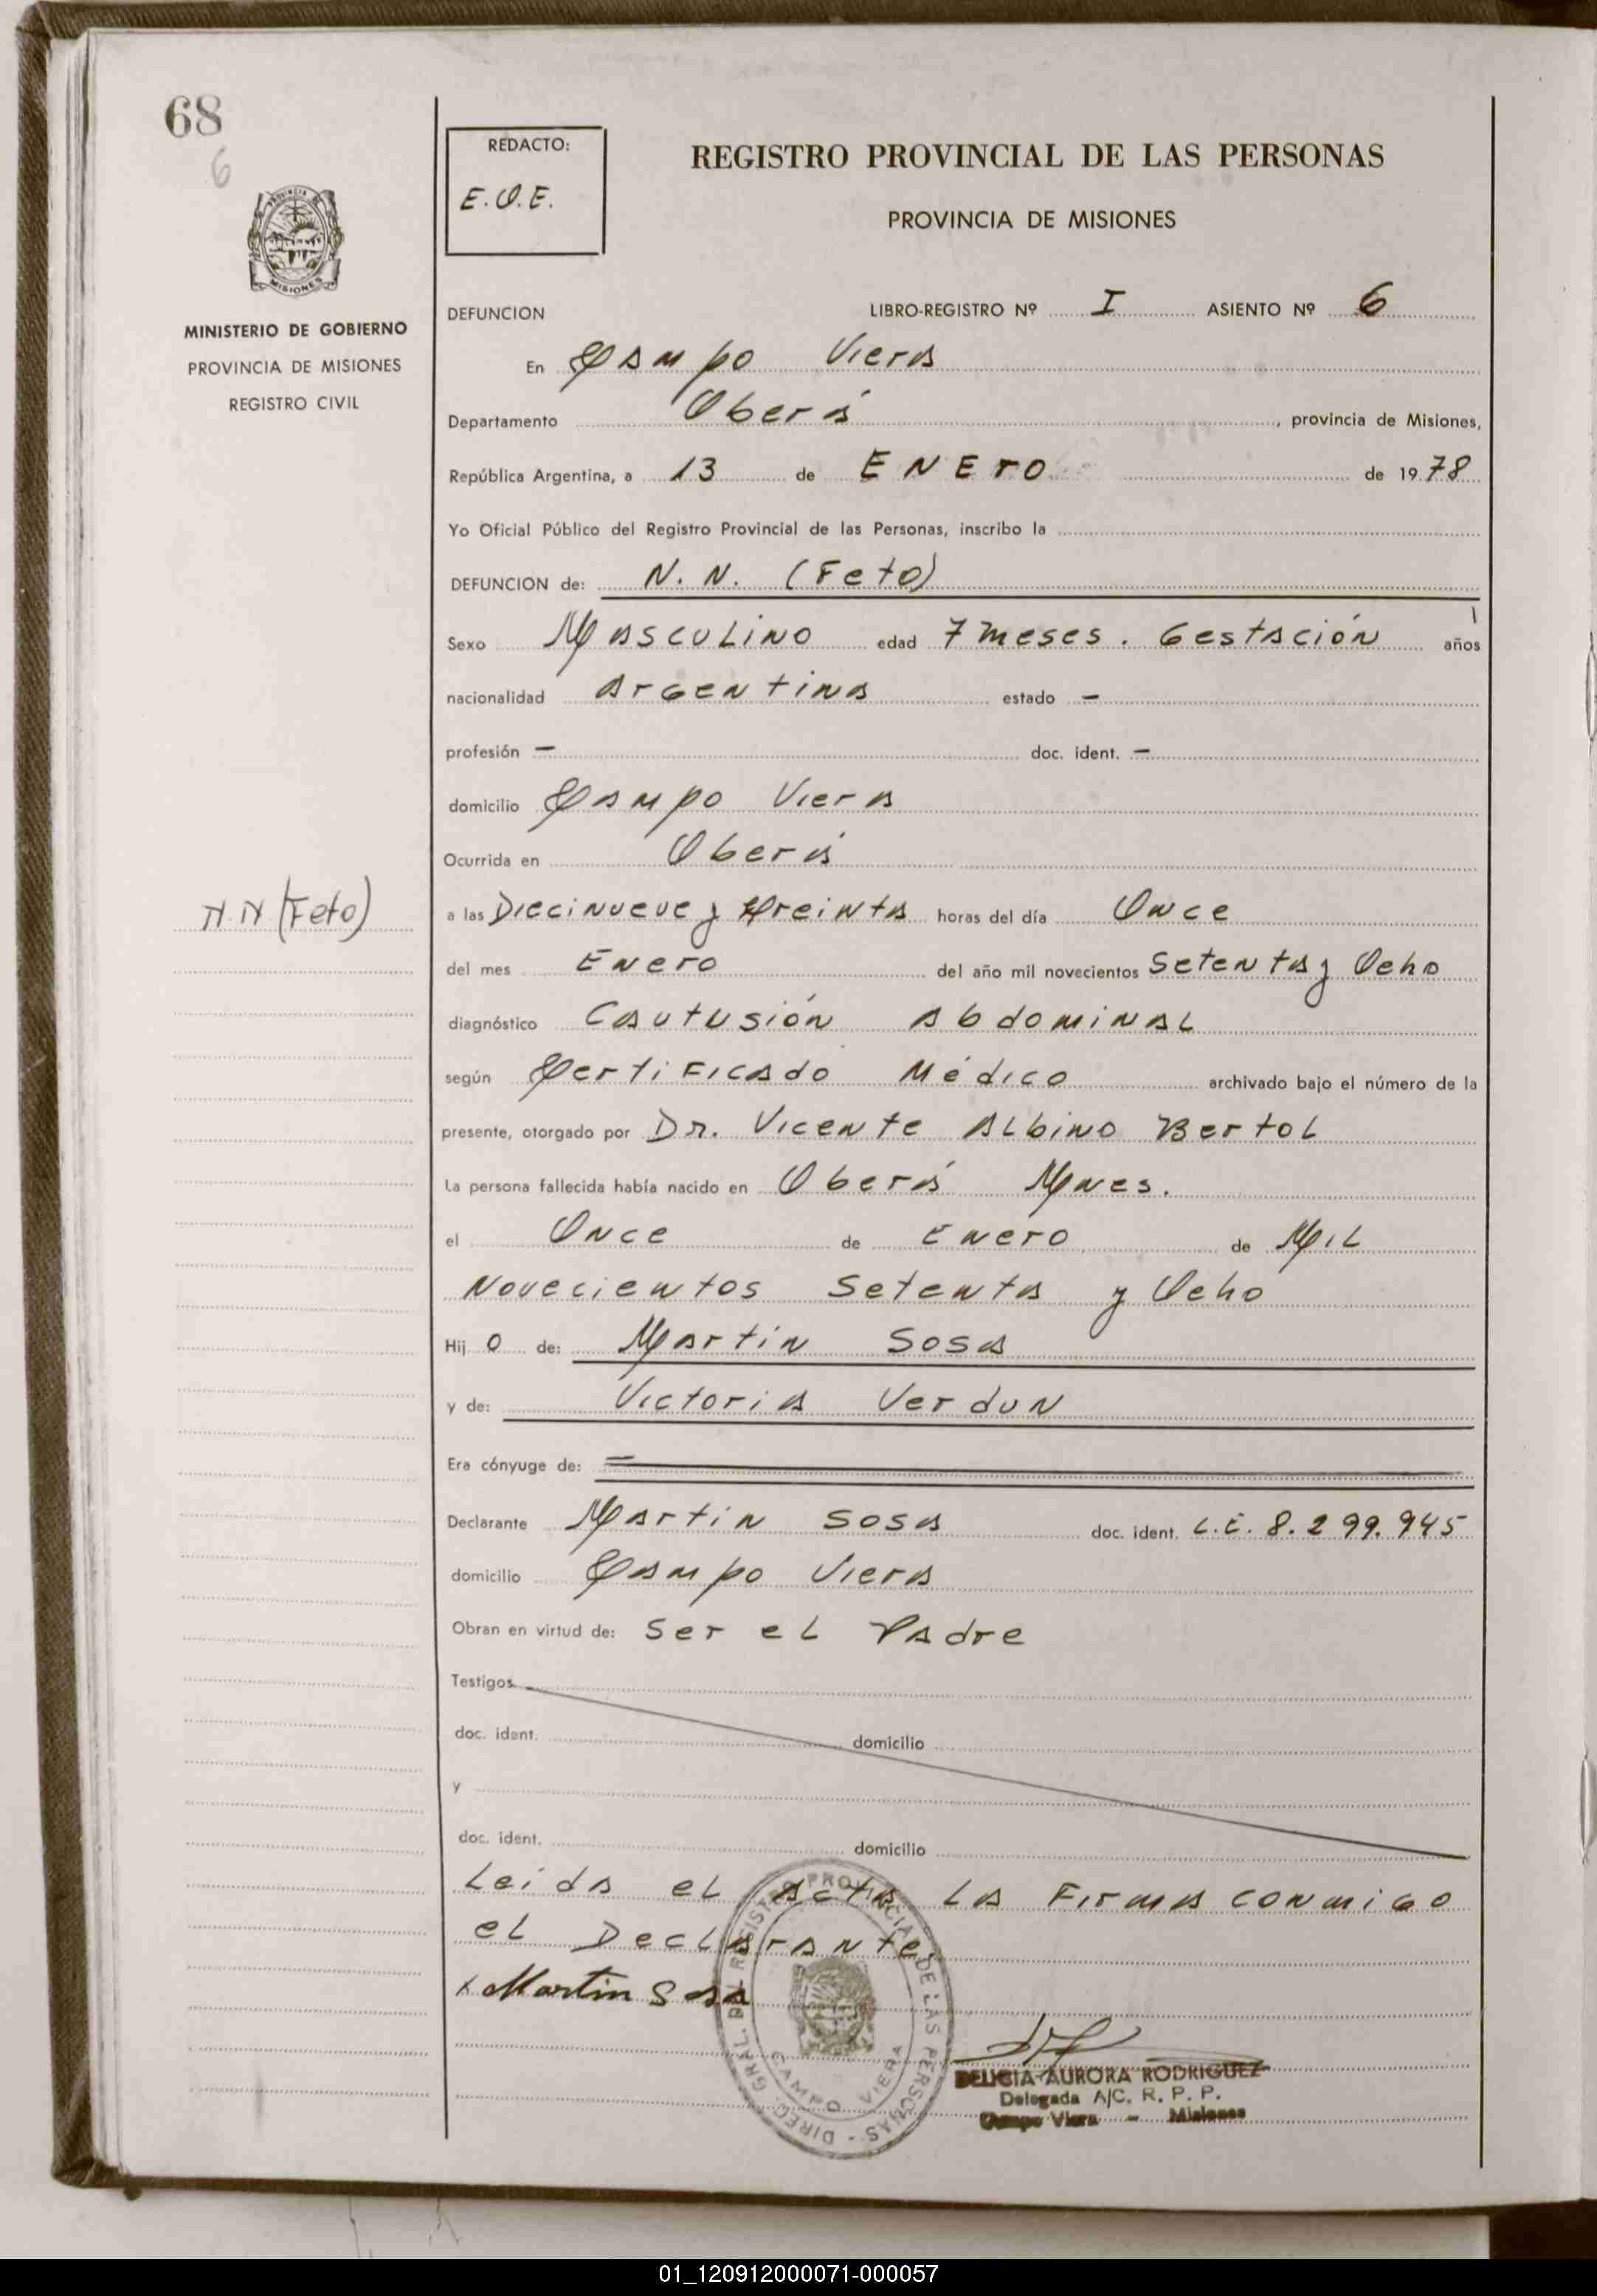 68
6
MISIONES
MINISTERIO DE GOBIERNO
PROVINCIA DE MISIONES
REGISTRO CIVIL
N N (Feto)
REDACTO:
E.O.E.
REGISTRO PROVINCIAL DE LAS PERSONAS
PROVINCIA DE MISIONES
DEFUNCION LIBRO-REGISTRO Nº I ASIENTO Nº 6
En Campo Viera
Departamento Oberá, provincia de Misiones,
República Argentina, a 13 de ENERO de 1978
Yo Oficial Público del Registro Provincial de las Personas, inscribo la
DEFUNCION de: N. N. (Feto)
Sexo Masculino edad 7 meses. Gestación años
nacionalidad Argentina estado —
profesión — doc. ident. —
domicilio Campo Viera
Ocurrida en Oberá
a las Diecinueve y Treinta horas del día Once
del mes Enero del año mil novecientos Setenta y Ocho
diagnóstico Cautusión Abdominal
según Certificado Médico archivado bajo el número de la
presente, otorgado por Dr. Vicente Albino Bertol
La persona fallecida había nacido en Oberá Mnes.
el Once de Enero de Mil
Novecientos Setenta y Ocho
Hijo de: Martin Sosa
y de: Victoria Verdun
Era cónyuge de: =
Declarante Martin Sosa doc. ident. L.E. 8.299.945
domicilio Campo Viera
Obran en virtud de: Ser el Padre
Testigos
doc. ident. domicilio
y
doc. ident. domicilio
Leida el Acta La Firma conmigo
el Declarante.
x Martin Sosa
DIREC. GRAL. DEL REGISTRO PROVINCIAL DE LAS PERSONAS
CAMPO VIERA
DELICIA AURORA RODRIGUEZ
Delegada A/C. R. P. P.
Campo Viera - Misiones
01_120912000071-000057